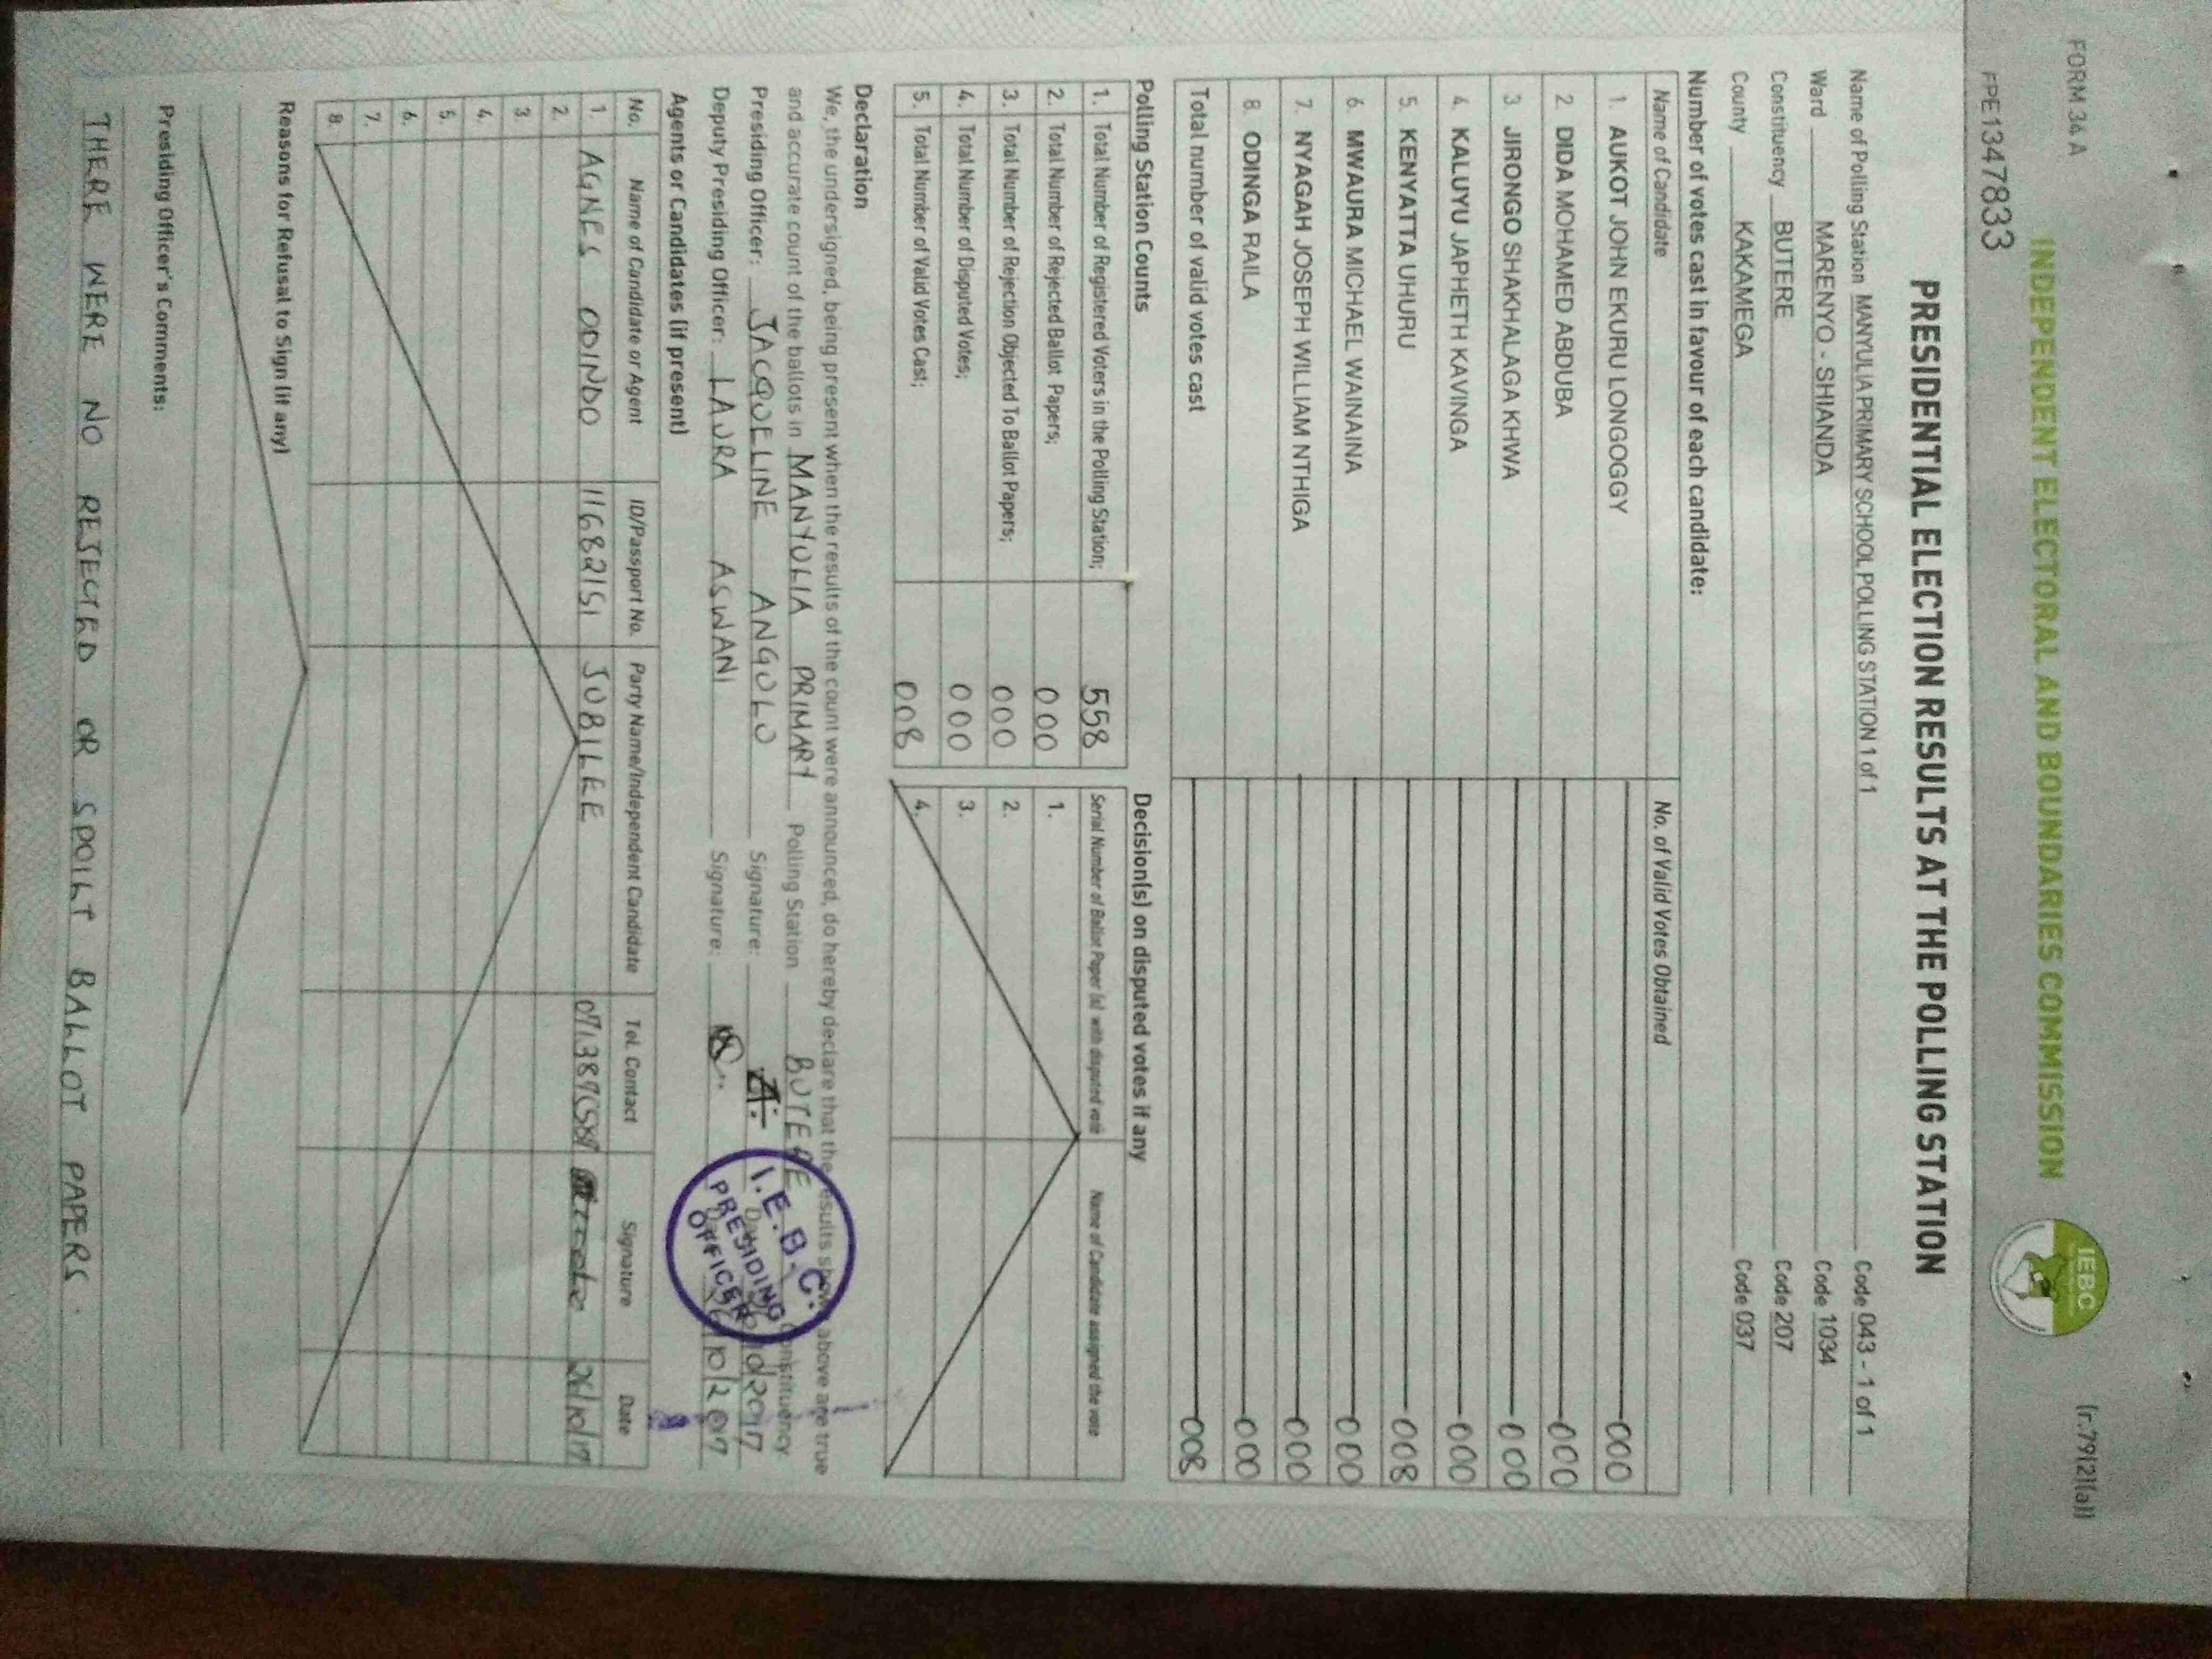 FORM 34 A
(r.79(2)(a))
INDEPENDENT ELECTORAL AND BOUNDARIES COMMISSION
IEBC
FPE1347833
PRESIDENTIAL ELECTION RESULTS AT THE POLLING STATION
Name of Polling Station MANYULIA PRIMARY SCHOOL POLLING STATION 1 of 1 Code 043 - 1 of 1
Ward MARENYO - SHIANDA Code 1034
Constituency BUTERE Code 207
County KAKAMEGA Code 037
Number of votes cast in favour of each candidate:
Name of Candidate No. of Valid Votes Obtained
1. AUKOT JOHN EKURU LONGOGGY 000
2. DIDA MOHAMED ABDUBA 000
3. JIRONGO SHAKHALAGA KHWA 000
4. KALUYU JAPHETH KAVINGA 000
5. KENYATTA UHURU 008
6. MWAURA MICHAEL WAINAINA 000
7. NYAGAH JOSEPH WILLIAM NTHIGA 000
8. ODINGA RAILA 000
Total number of valid votes cast 008
Polling Station Counts
1. Total Number of Registered Voters in the Polling Station; 558
2. Total Number of Rejected Ballot Papers; 000
3. Total Number of Rejection Objected To Ballot Papers; 000
4. Total Number of Disputed Votes; 000
5. Total Number of Valid Votes Cast; 008
Decision(s) on disputed votes if any
Serial Number of Ballot Paper (s) with disputed vote Name of Candidate assigned the vote
1.
2.
3.
4.
Declaration
We, the undersigned, being present when the results of the count were announced, do hereby declare that the results shown above are true
and accurate count of the ballots in MANYULIA PRIMARY Polling Station BUTERE Constituency
Presiding Officer: JACQUELINE ANGOLO Signature: Date
Deputy Presiding Officer: LAURA ASWANI Signature: 26/10/2017
I.E.B.C.
PRESIDING
OFFICER
Agents or Candidates (if present)
No. Name of Candidate or Agent ID/Passport No. Party Name/Independent Candidate Tel. Contact Signature Date
1. AGNES ODINDO 11682151 JUBILEE 26/10/17
2.
3
4.
5.
6.
7.
8.
Reasons for Refusal to Sign (if any)
Presiding Officer's Comments:
THERE WERE NO REJECTED OR SPOILT BALLOT PAPERS.